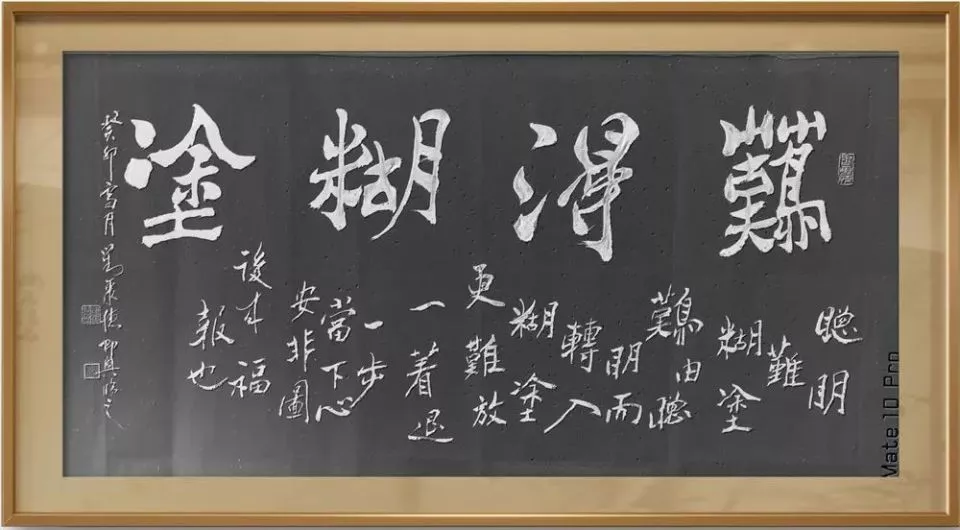 難得糊塗
聰明
難
糊塗
難由聰
明而
轉入
糊塗
更難放
一着退
一步
當下心
安非圖
後来福
報也
癸卯
Mate 10 Pro